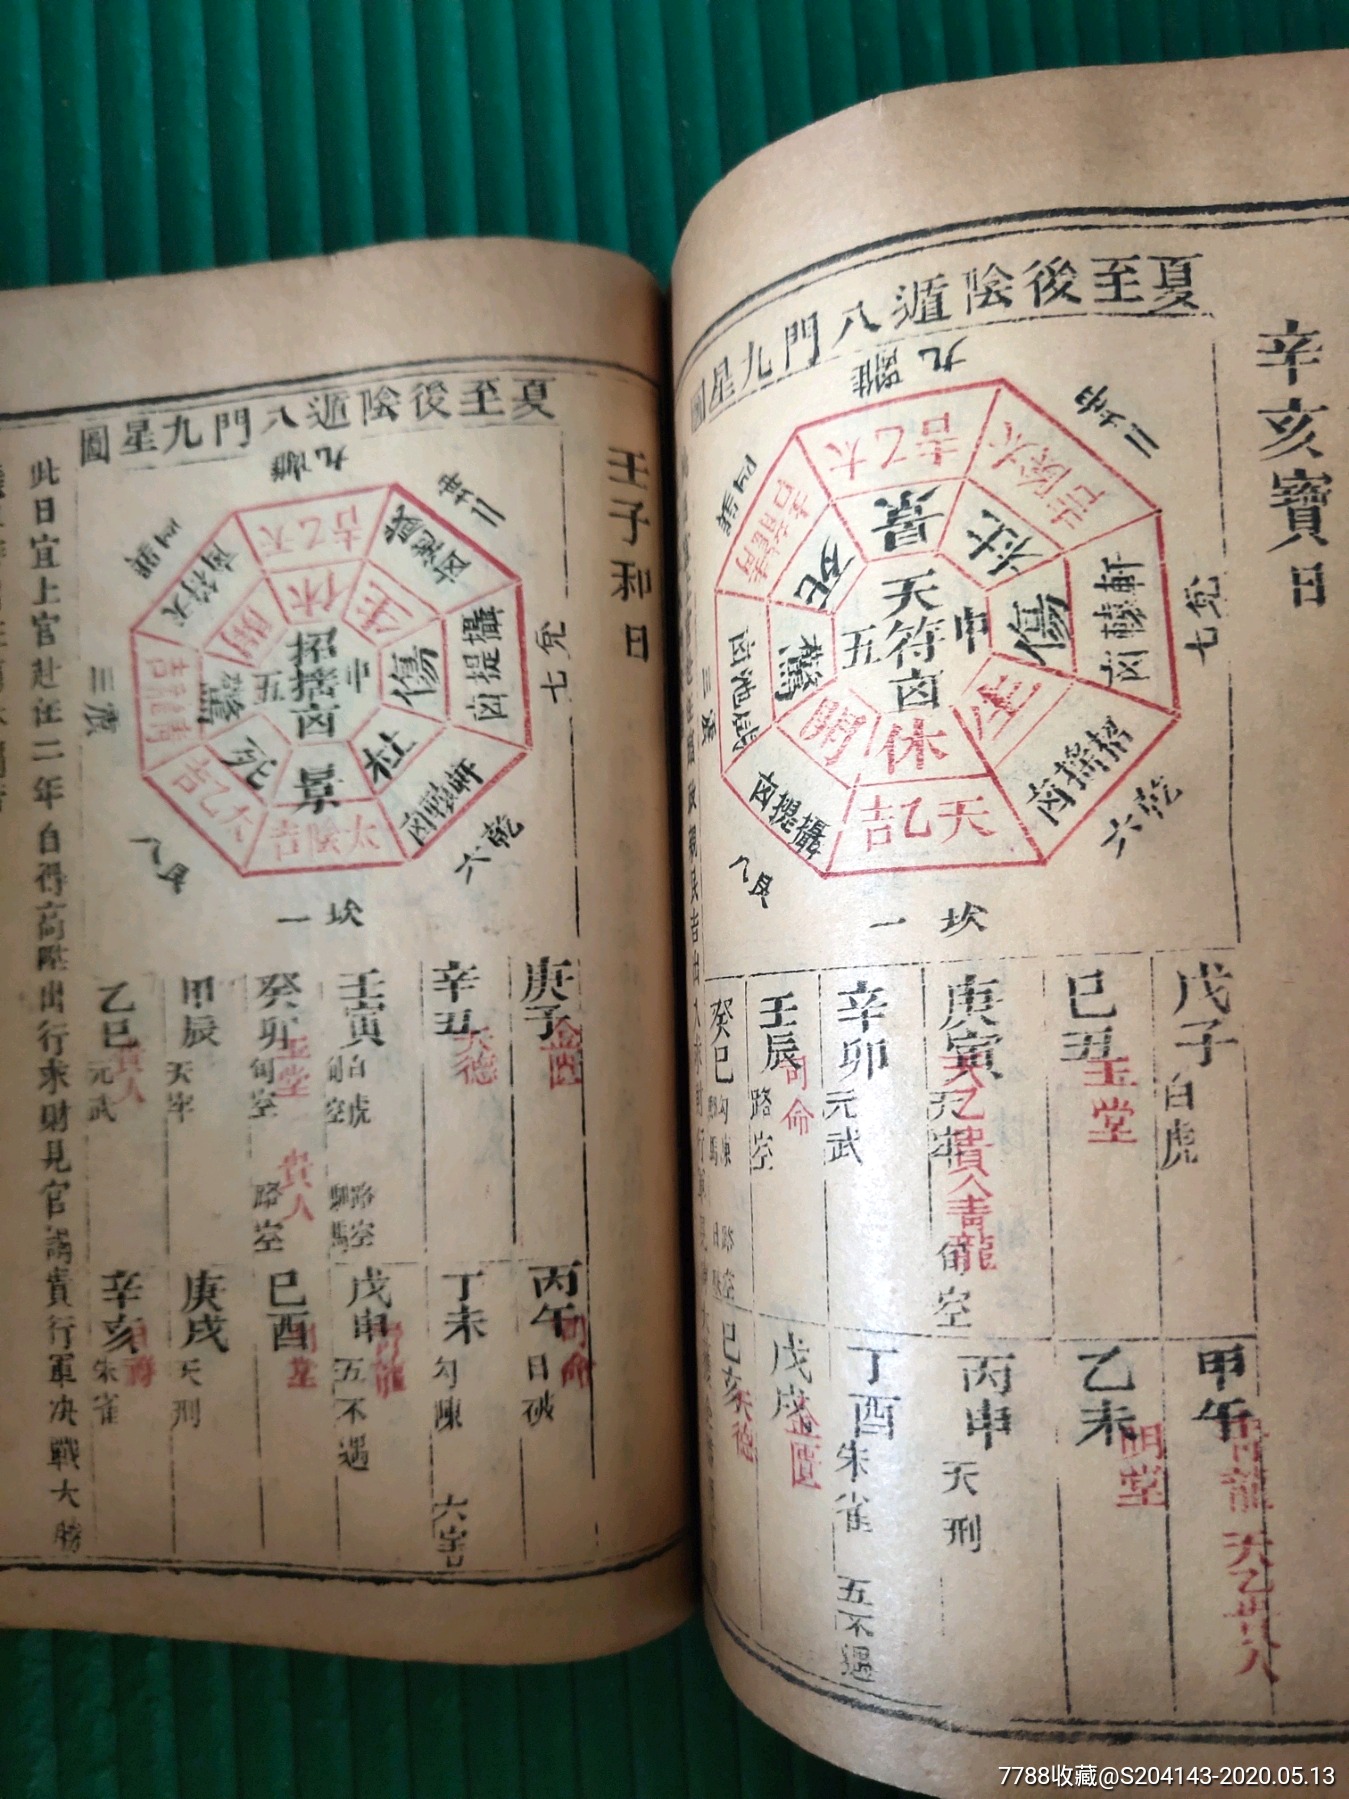 辛亥寶日
夏至後陰遁八門九星圖
九離
二坤
兌七
乾六
坎一
太乙吉
太陰吉
軒轅卤
招搖卤
天乙吉
攝提卤
咸池卤
青龍吉
景
杜
傷
生
休
開
驚
死
天符卤
中五
戊子 白虎
己丑 玉堂
庚寅 天乙貴人青龍 天牢 旬空
辛卯 元武
壬辰 司命 路空
癸巳 勾陳
甲午 青龍 天乙貴人
乙未 明堂
丙申 天刑
丁酉 朱雀 五不遇
戊戌 金匱
己亥 天德
壬子 日
夏至後陰遁八門九星圖
九離
兌七
乾六
坎一
太乙吉
咸池卤
攝提卤
軒轅卤
太陰吉
天乙吉
青龍吉
天符卤
休
生
傷
杜
景
死
驚
開
招搖卤
中五
庚子 金匱
辛丑 天德
壬寅 白虎 旬空 路空 馹馬
癸卯 玉堂 旬空 貴人 路空
甲辰 天牢
乙巳 貴人 元武
丙午 司命 日破
丁未 勾陳 六害
戊申 青龍 五不遇
己酉 明堂
庚戌 天刑
辛亥 朱雀
此日宜上官赴任二年自得高陞出行求財見官謁貴行軍决戰大勝